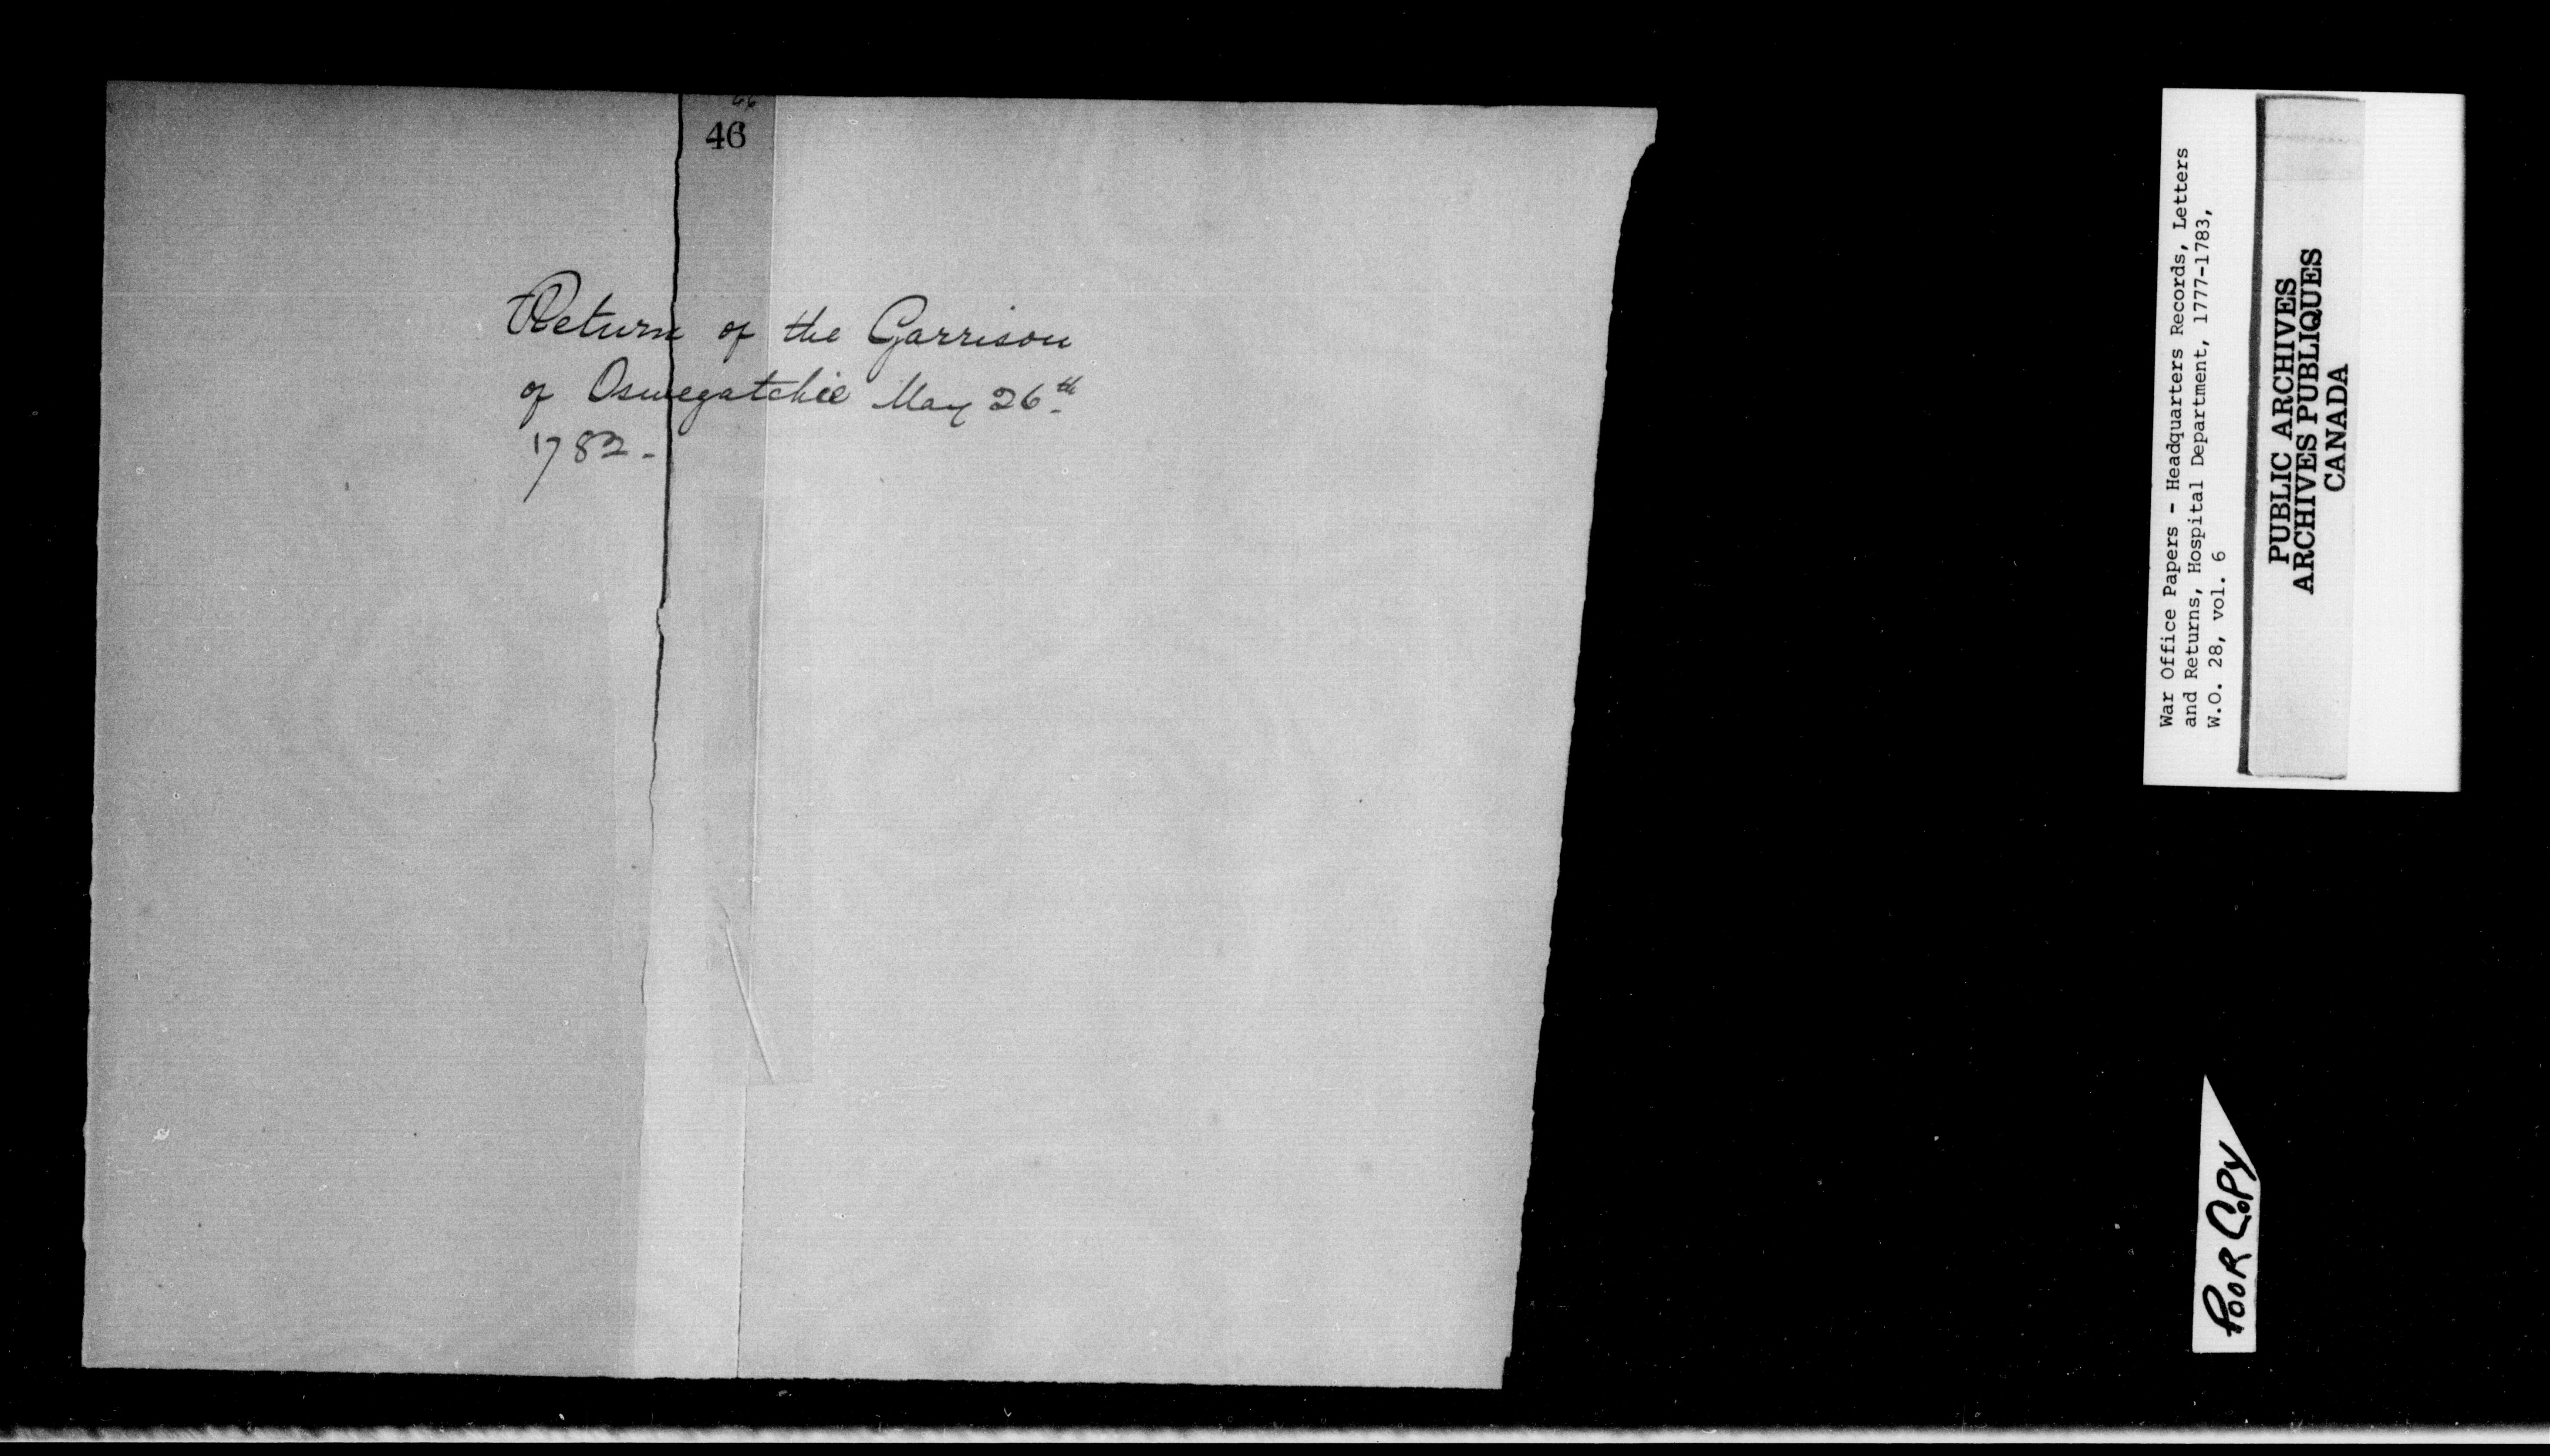 46
Return of the Garrison
of Oswegatchie May 26th
1782-
War Office Papers - Headquarters Records, Letters
and Returns, Hospital Department, 1777-1783,
W.O. 28, vol. 6
PUBLIC ARCHIVES
ARCHIVES PUBLIQUES
CANADA
POOR COPY